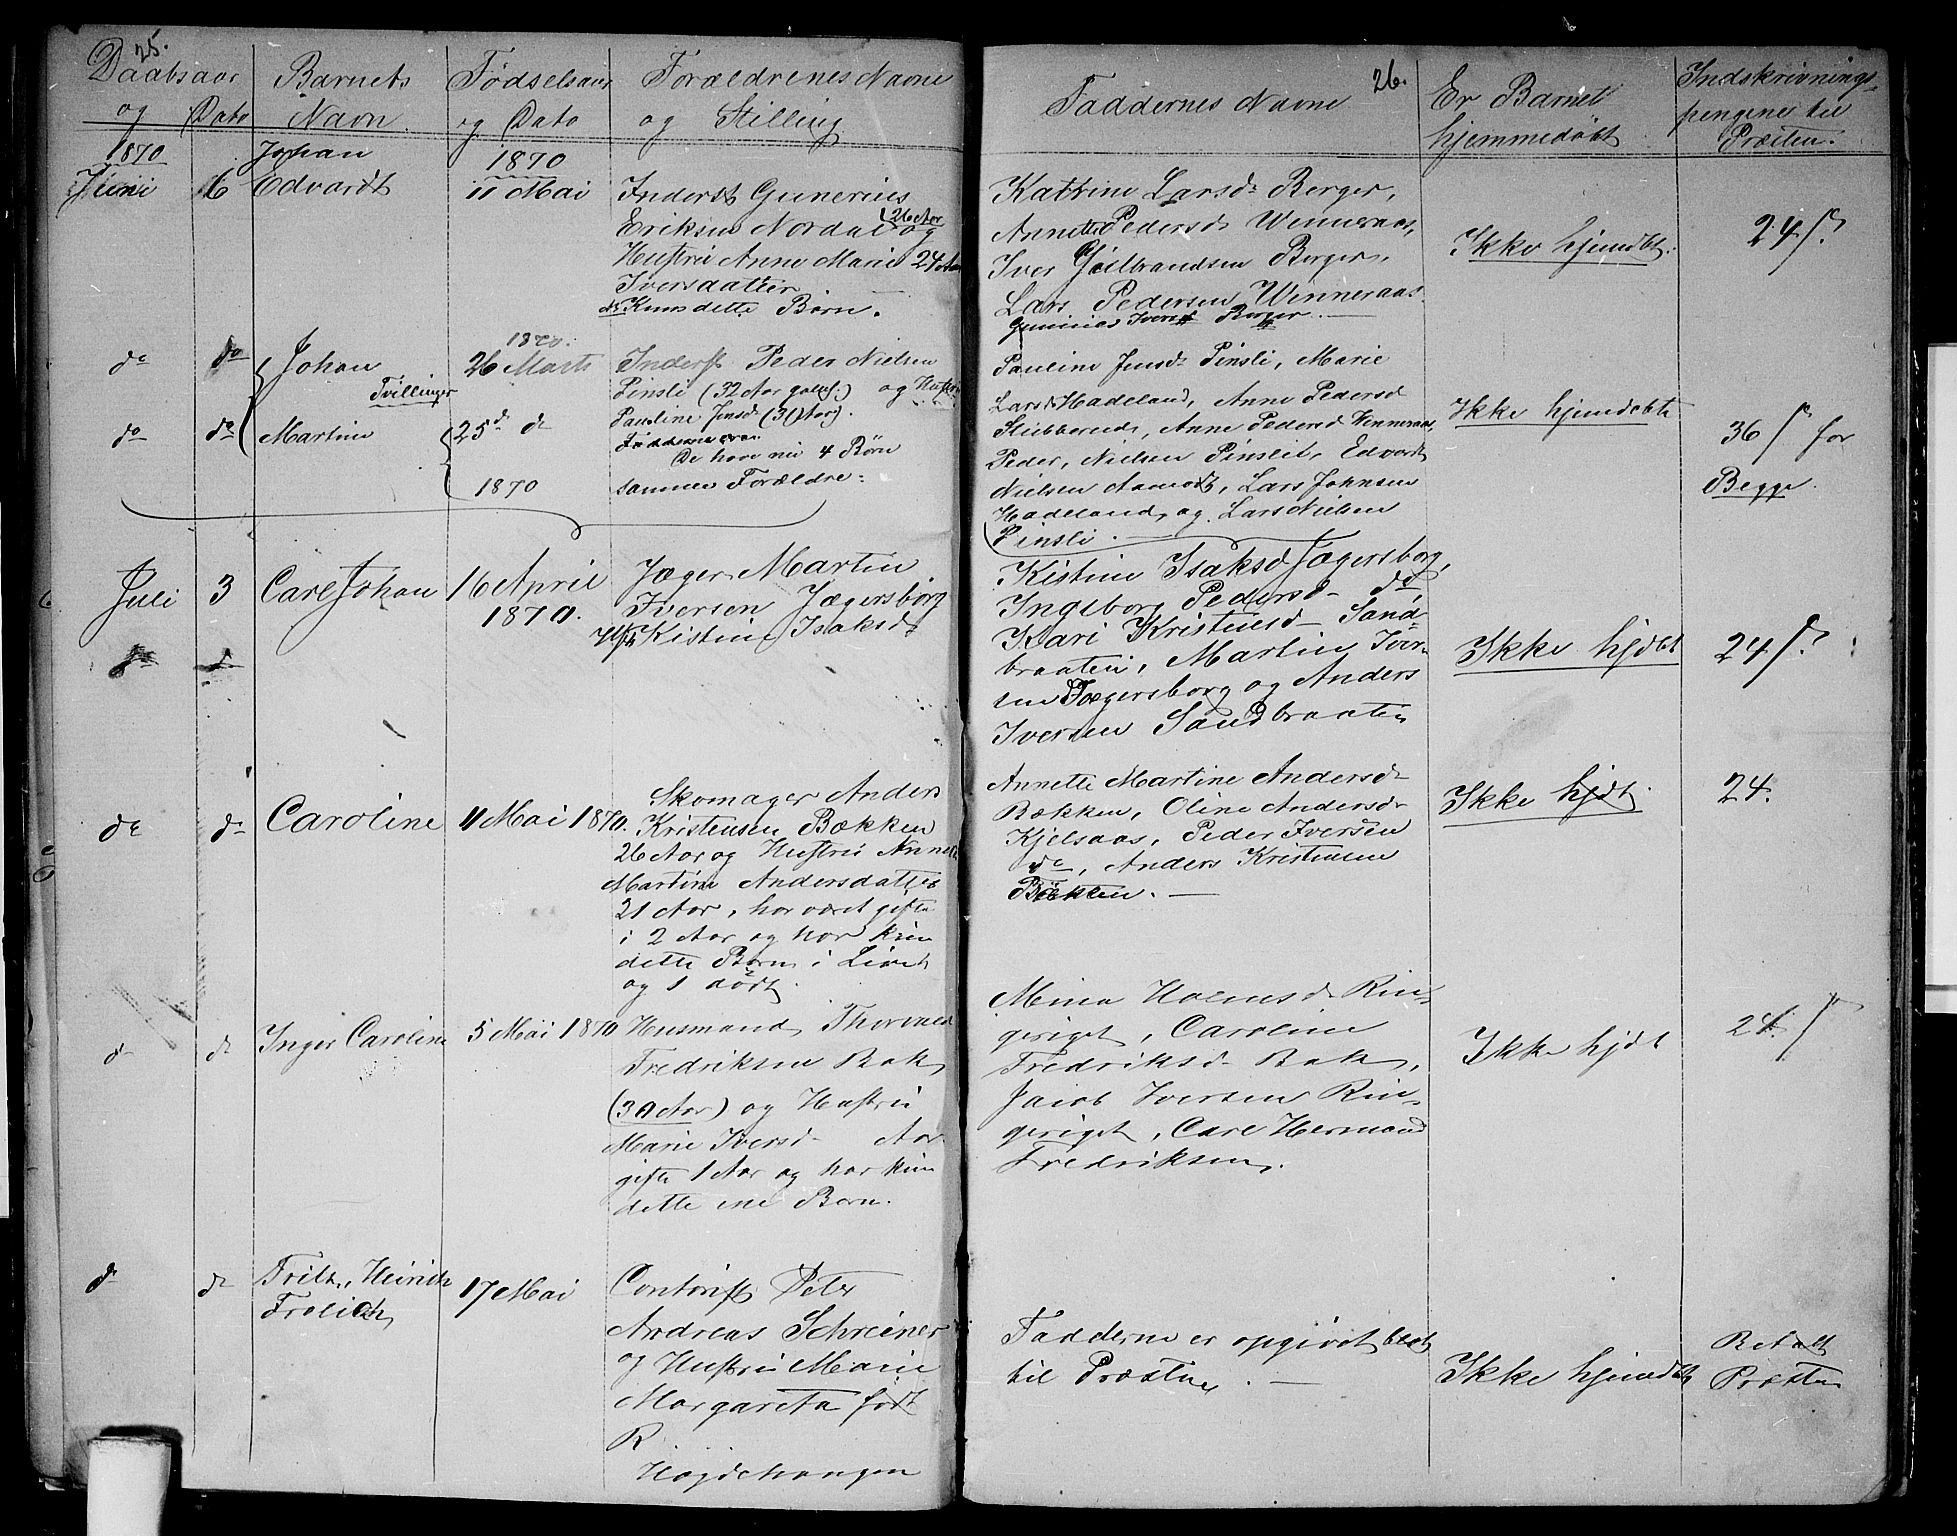 25.
Daabsaar Barnets Fødselsaar Forældrenes Navne
og Dato Navn og Dato og Stilling
1870 Johan 1870
Juni 6 Edvardt 11 Mai Inderst Gunerius
Eriksen Nordal (26 Aar og
Hustru Anne Marie 24 Aar
Iversdatter
Kun dette Barn.
do do Johan 1870. 26 Marts Inderst Peder Nielsen
Tvillinger Pinsli (32 Aar gaml.) og Hustru
do do Martin 25 d do Pauline Jensd (31 Aar).
De have nu 4 Børn
1870 samme Forældre.
Juli 3 Carl Johan 16 April Jæger Martin
1870. Iversen Jægersborg
Kistine Isaksd
do d
do do Caroline 11 Mai 1870. Skomager Anders
Kristensen Bækken
26 Aar og Hustru Annette
Martine Andersdatter
21 Aar, har været gifte
i 2 Aar og har kun
dette Barn i Livet
og 1 dødt.
d do Inger Caroline 5 Mai 1870 Husmand Thorvald
Fredriksen Bak
(30 Aar) og Hustru
Marie Iversd Aar
gifte 1 Aar og har kun
dette ene Barn.
do do Fritz, Heinrich 17 Mai Contorist Peter
Frolich Andreas Schreiner
og Hustru Marie
Margareta født
R
Høgdehaugen
26.
Faddernes Navne Er Barnet Indskrivnings-
hjemmedøbt pengene til
Præsten.
Katrine Larsd Berger,
Annette Pedersd Winneraas,
Iver Gulbrandsen Berger, Ikke hjemdbt. 24 s.
Lars Pedersen Winneraas
Gunerius Iversen Berger
Pauline Jensd Pinsli, Marie
Larsd Hadeland, Anne Pedersd Ikke hjemdøbte
Stubberud, Anne Pedersd Winneraas, 36 s for
Peder Nielsen Pinsli, Edvard Begge.
Nielsen Aamodt, Lars Johnsen
Hadeland, og Lars Nielsen
Pinsli.
Kistine Isaksd Jægersborg,
Ingeborg Pedersd do,
Kari Kristensd Sand-
braaten, Martin Iver- Ikke hjdbt 24 s.
sen Jægersborg og Anders
Iversen Sandbraaten
Annette Martine Andersd
Bækken, Oline Andersd Ikke hjdt. 24.
Kjelsaas, Peder Iversen
do, Anders Kristensen
Bækken.
Mina Holmesd Rin-
geriget, Caroline 24 s
Fredriksd Bak, Ikke hjdt
Jacob Iversen Rin-
geriget, Carl Herman
Fredriksen.
Fadderne er opgivet blot Betalt
til Præsten. Ikke hjemdbt Præsten